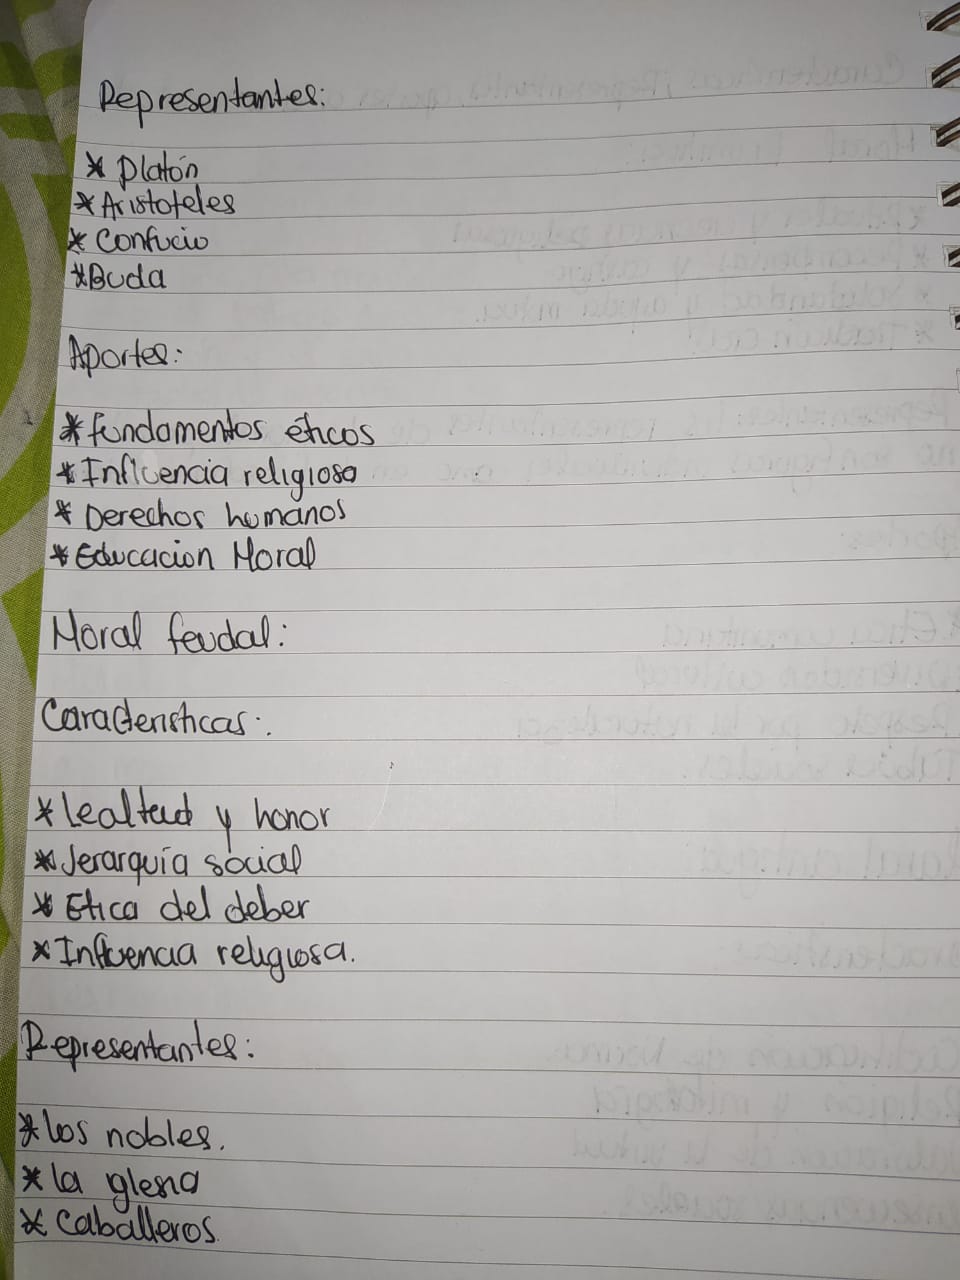 Representantes:
* Platón
* Aristoteles
* Confucio
* Buda
Aportes:
* fundamentos éticos
* Influencia religiosa
* Derechos humanos
* Educacion Moral
Moral feudal:
Caracteristicas:
* Lealtad y honor
* Jerarquía social
* Etica del deber
* Influencia religiosa.
Representantes:
* los nobles.
* la glesia
* Caballeros.